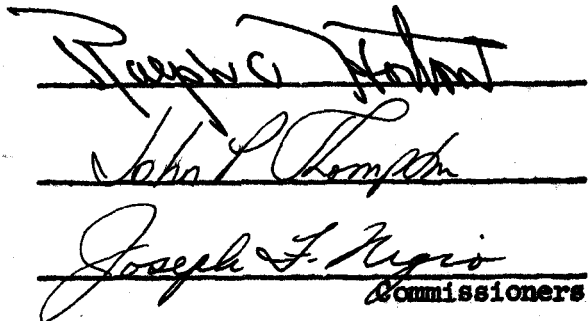 Ralph C Horton
John P Thompson
Joseph F. Nigro
Commissioners